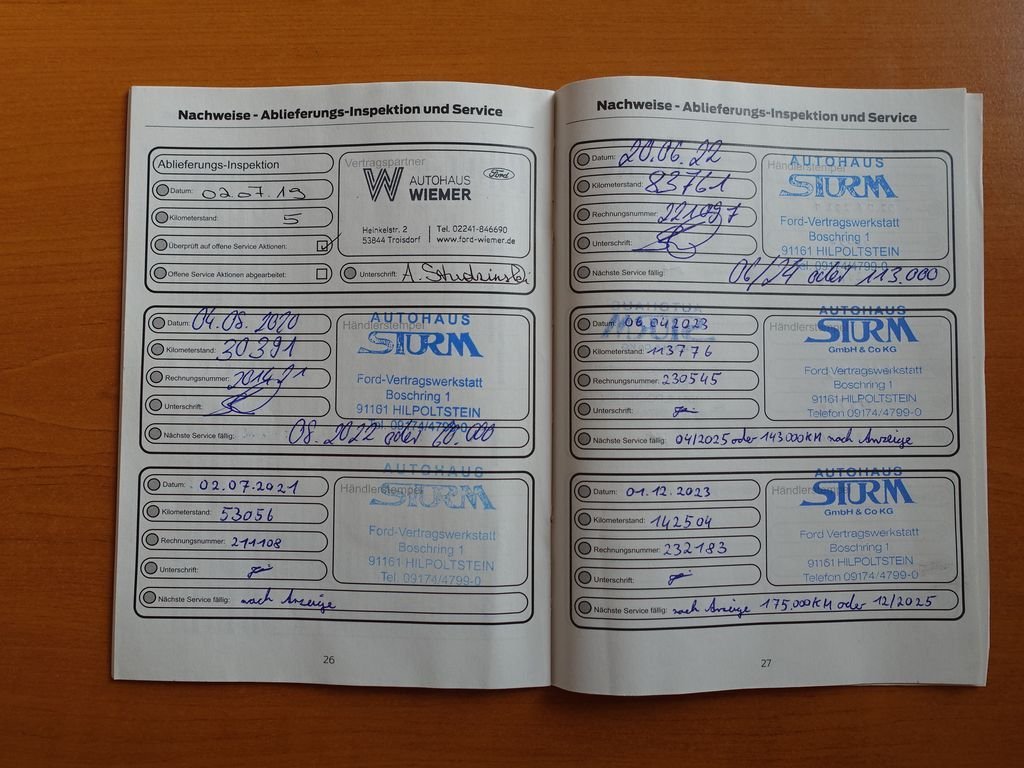 Nachweise - Ablieferungs-Inspektion und Service
Ablieferungs-Inspektion
Datum: 02.07.19
Kilometerstand: 5
Überprüft auf offene Service Aktionen:
Offene Service Aktionen abgearbeitet:
Vertragspartner
W AUTOHAUS WIEMER
Ford
Heinkelstr. 2
53844 Troisdorf
Tel. 02241-846690
www.ford-wiemer.de
Unterschrift: A. Studzinski
Datum: 04.08.2020
Kilometerstand: 30391
Rechnungsnummer: 201421
Unterschrift:
Nächste Service fällig: 08.2022 oder 60.000
Händlerstempel
AUTOHAUS
STURM
Ford-Vertragswerkstatt
Boschring 1
91161 HILPOLTSTEIN
Tel. 09174/4799-0
Datum: 02.07.2021
Kilometerstand: 53056
Rechnungsnummer: 211108
Unterschrift:
Nächste Service fällig: nach Anzeige
Händlerstempel
AUTOHAUS
STURM
Ford-Vertragswerkstatt
Boschring 1
91161 HILPOLTSTEIN
Tel. 09174/4799-0
26
Nachweise - Ablieferungs-Inspektion und Service
Datum: 20.06.22
Kilometerstand: 83761
Rechnungsnummer: 221097
Unterschrift:
Nächste Service fällig: 06/24 oder 113.000
Händlerstempel
AUTOHAUS
STURM
Ford-Vertragswerkstatt
Boschring 1
91161 HILPOLTSTEIN
Tel. 09174/4799-0
Datum: 06.04.2023
Kilometerstand: 113776
Rechnungsnummer: 230545
Unterschrift:
Nächste Service fällig: 04/2025 oder 143.000KM nach Anzeige
Händlerstempel
AUTOHAUS
STURM
GmbH & Co KG
Ford-Vertragswerkstatt
Boschring 1
91161 HILPOLTSTEIN
Telefon 09174/4799-0
Datum: 01.12.2023
Kilometerstand: 142504
Rechnungsnummer: 232183
Unterschrift:
Nächste Service fällig: nach Anzeige 175.000KM oder 12/2025
Händlerstempel
AUTOHAUS
STURM
GmbH & Co KG
Ford-Vertragswerkstatt
Boschring 1
91161 HILPOLTSTEIN
Telefon 09174/4799-0
27